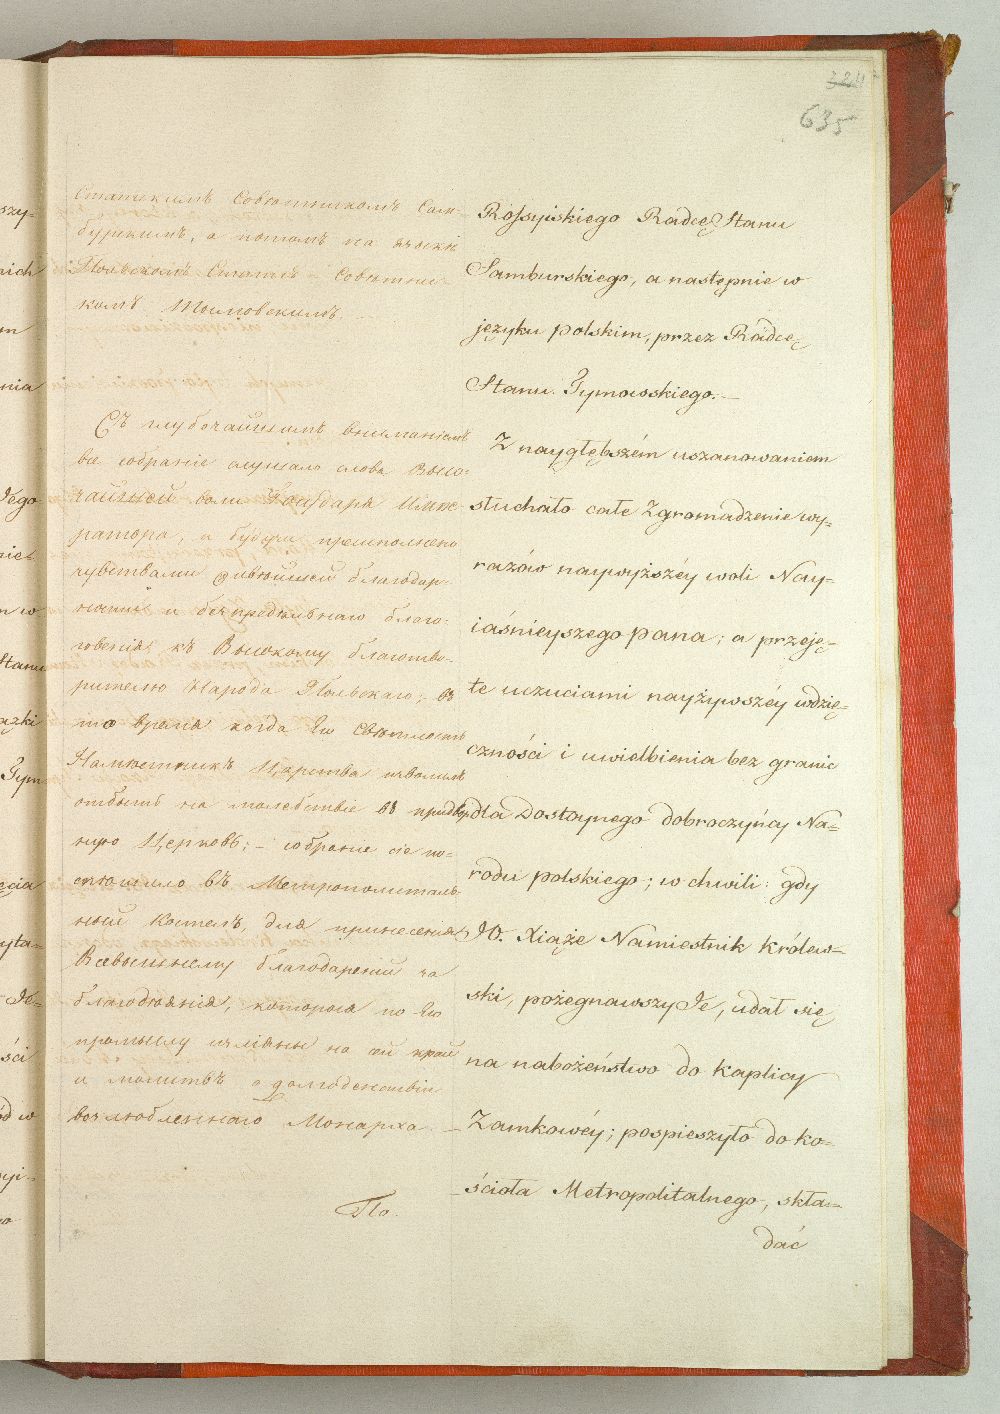 324
635
Статскимъ Совѣтникомъ Сам-
бурскимъ, а потомъ на языкѣ
Польскомъ Статсъ-Совѣтни-
комъ Тымовскимъ.
Съ глубочайшимъ вниманіемъ
все собраніе слушало слова Высо-
чайшей воли Государя Импе-
ратора, и будучи преисполнено
чувствами живѣйшей благодар-
ности и безпредѣльнаго благо-
говенія, къ Высокому благотво-
рителю Народа Польскаго; въ
то время когда Его Свѣтлость
Намѣстникъ Царства изволилъ
отбыть на молебствіе въ придвор-
ную Церковь; – собраніе сіе по-
спѣшило въ Метрополиталь-
ный Костелъ, для принесенія
Всевышнему благодареній за
благодѣянія, которыя по Его
промыслу изліяны на сей край
и молитвъ о долгоденствіи
возлюбленнаго Монарха. –
По.
Rossyiskiego Radcę Stanu
Samburskiego, a następnie w
języku polskim, przez Radcę
Stanu Tymowskiego. –
Z naygłębszém uszanowaniem
słuchało całe Zgromadzenie wy-
razów naywyższéy woli Nay-
iaśnieyszego pana; a przeję-
te uczuciami nayżywszéy wdzię-
czności i uwielbienia bez granic
dla Dostoynego dobroczyńcy Na-
rodu polskiego; w chwili gdy
JO. Xiąże Namiestnik Królew-
ski, pożegnawszy Je, udał się
na nabożeństwo do kaplicy
Zamkowéy; pospieszyło do ko-
ścioła Metropolitalnego, skła-
dać